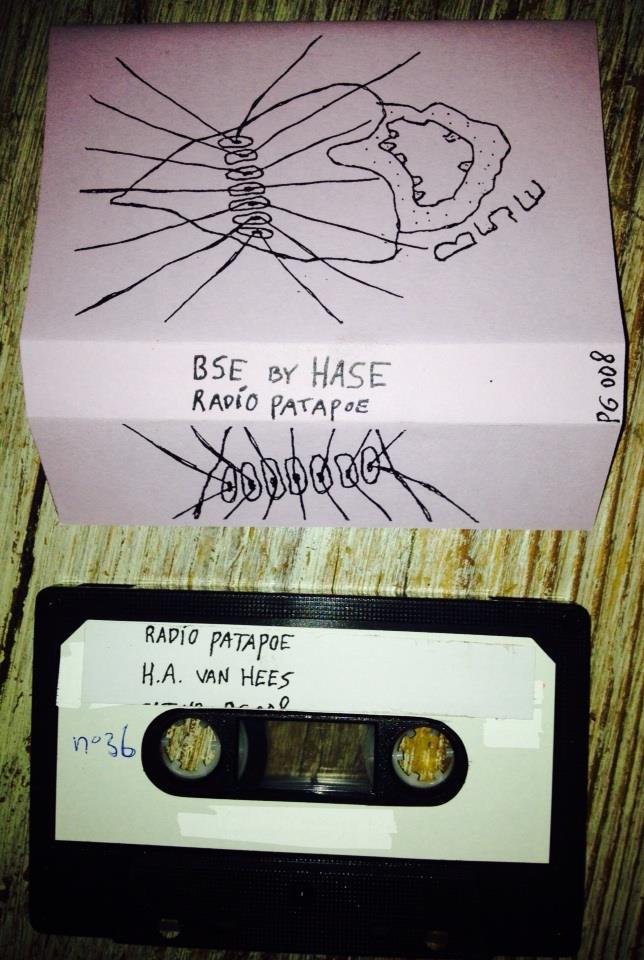 BSE
BSE BY HASE
RADÍO PATAPOE
PG 008
RADÍO PATAPOE
H.A. VAN HEES
nº36